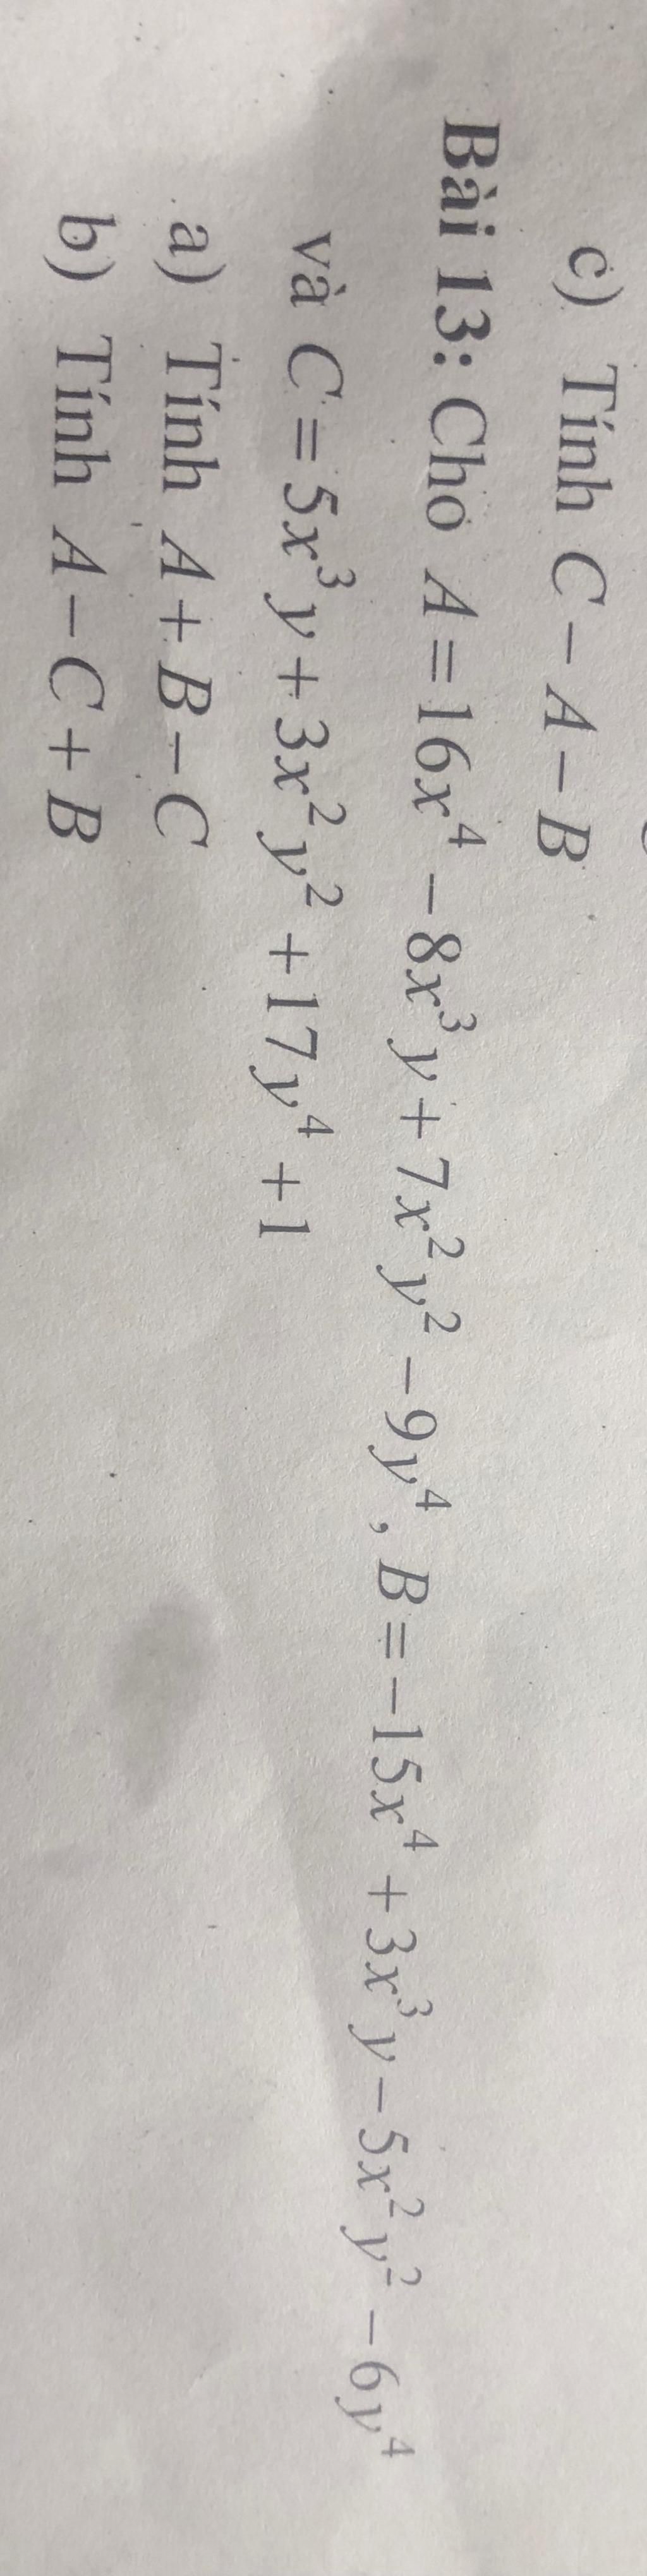 c) Tính C − A − B
Bài 13: Cho A = 16x⁴ − 8x³y + 7x²y² − 9y⁴, B = −15x⁴ + 3x³y − 5x²y² − 6y⁴
và C = 5x³y + 3x²y² + 17y⁴ + 1
a) Tính A + B − C
b) Tính A − C + B